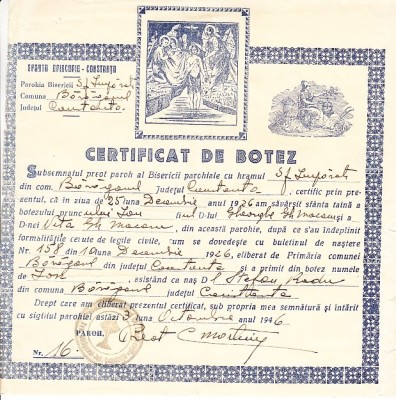 SFÂNTA EPISCOPIE - CONSTANȚA
Parohia Bisericii Sf. Împărați
Comuna Bărăganul
Județul Constanța.
CERTIFICAT DE BOTEZ
Subsemnatul preot paroh al Bisericii parohiale cu hramul Sf Împărați
din com. Bărăganul Județul Constanța, certific prin pre-
zentul, că în ziua de 25 luna Decembrie anul 1926 am săvârșit sfânta taină a
botezului pruncului Ion fiul D-lui Gheorghe Gh. Macam și a
D-nei Vita Gh Macam, din această parohie, după ce s'au îndeplinit
formalitățile cerute de legile civile, cum se dovedește cu buletinul de naștere
Nr. 158 din 10 Decembrie 1926, eliberat de Primăria comunei
Bărăganul din județul Constanța și a primit din botez numele
de Ion, asistând ca naș D l Stefan Radu
din com Bărăganul județul Constanța
Drept care am eliberat prezentul certificat, sub propria mea semnătură și întărit
cu sigiliul parohiei astăzi 3 luna Octombrie anul 1946
PAROH,
Preot C
Nr. 16.